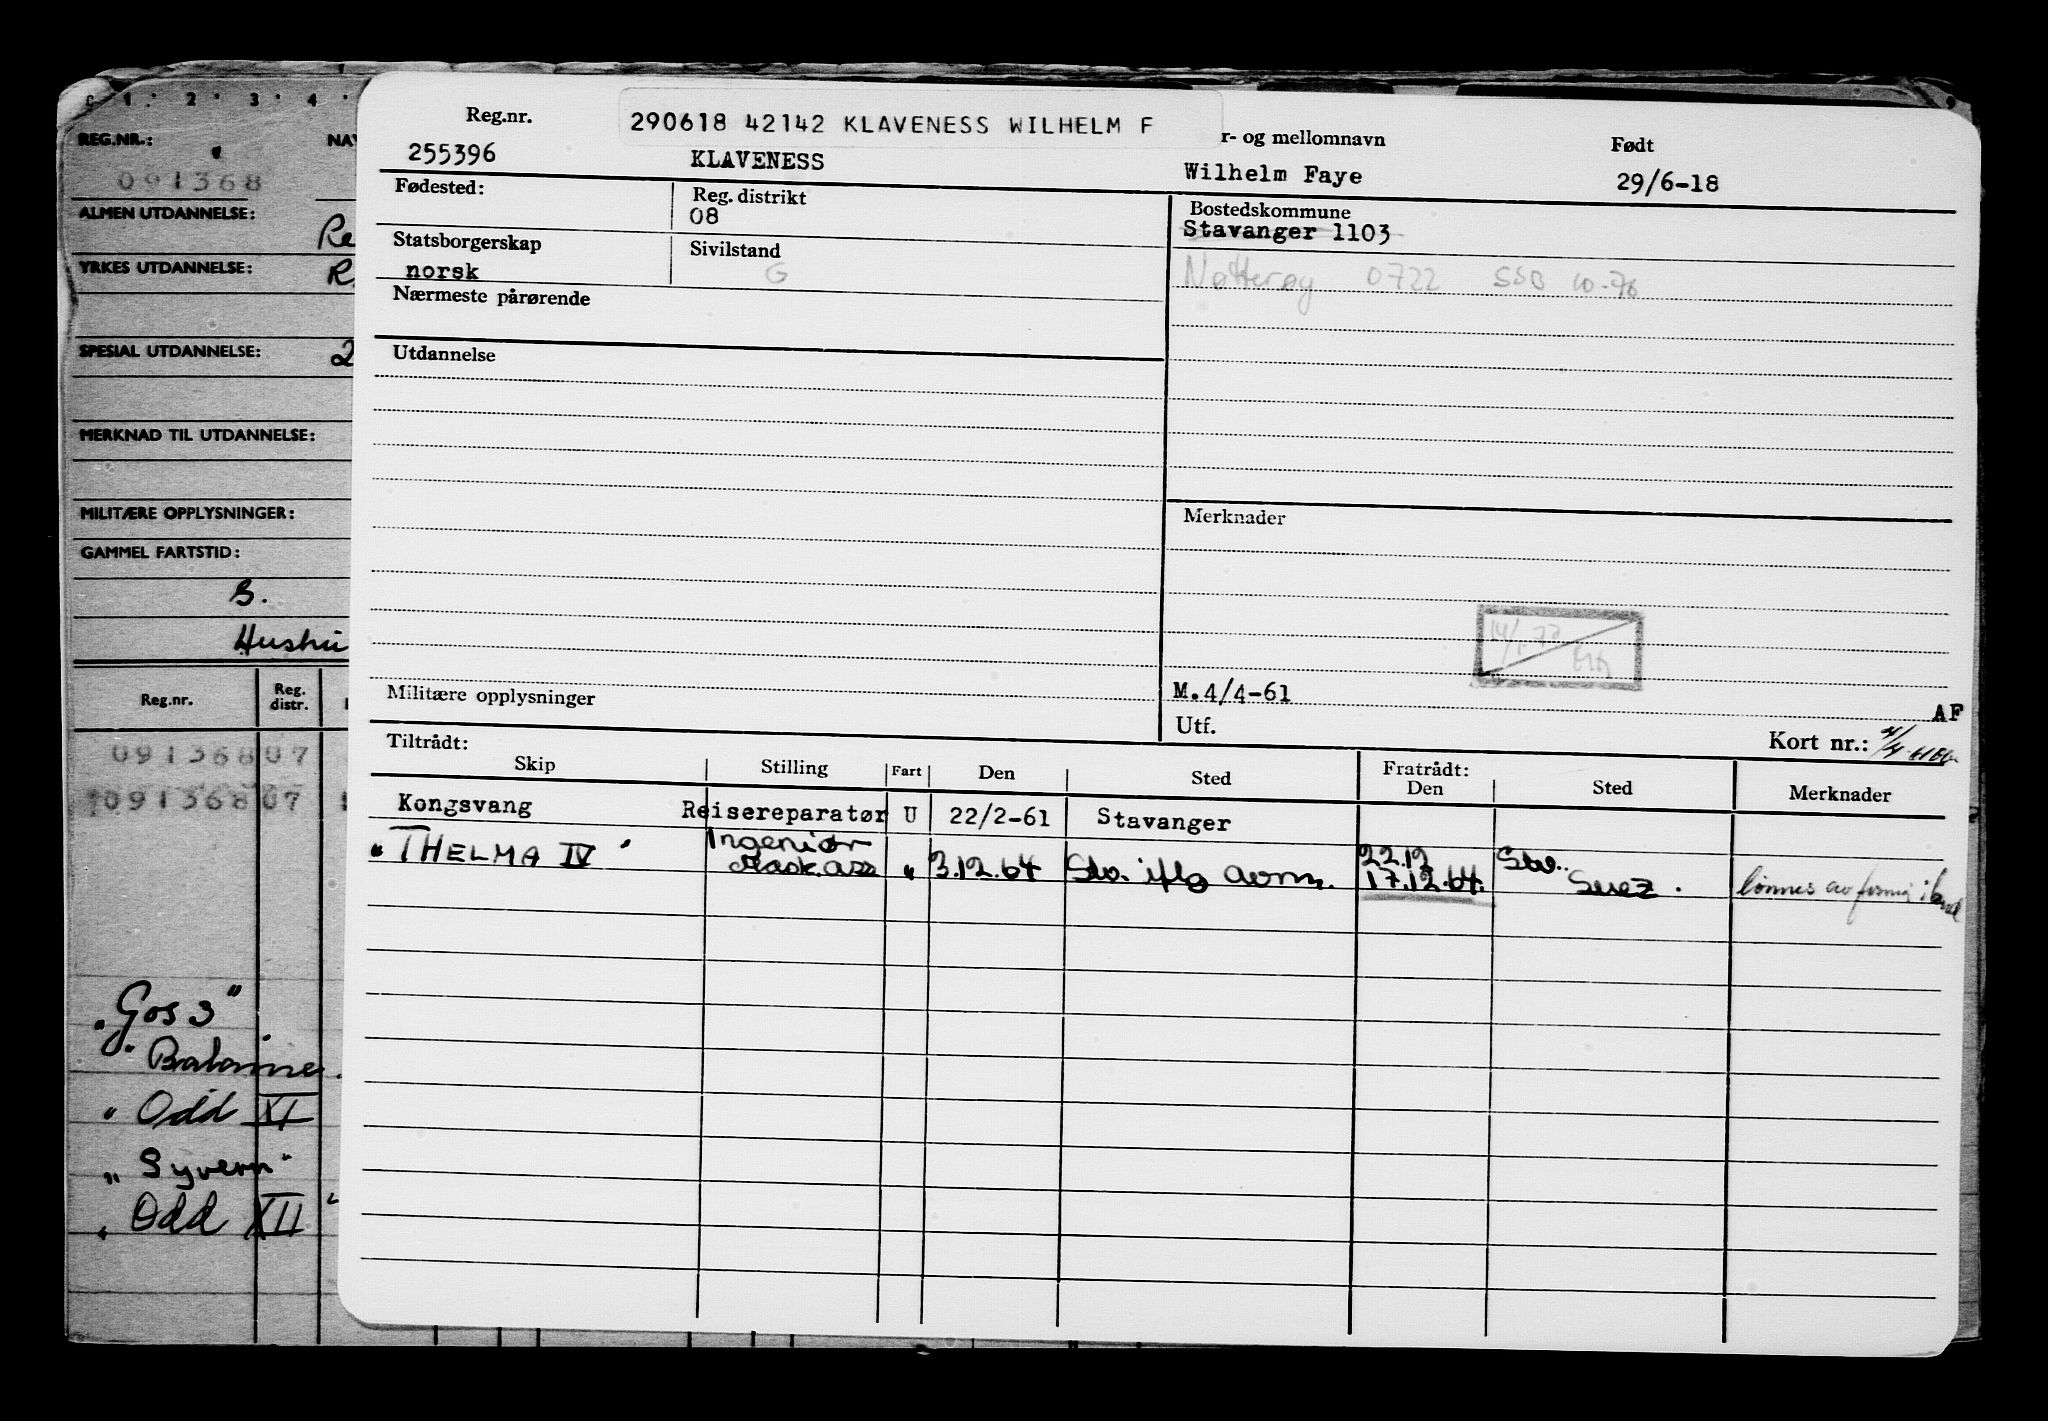 C 1. 2. 3. 4.
REG.NR.:
091368
ALMEN UTDANNELSE:
YRKES UTDANNELSE:
SPESIAL UTDANNELSE:
MERKNAD TIL UTDANNELSE:
MILITÆRE OPPLYSNINGER:
GAMMEL FARTSTID:
Reg.nr. Reg. distr.
091368 07
091368 07
"Gos 3"
" Odd XI
" Syvern"
" Odd XII "
Reg.nr. 290618 42142 KLAVENESS WILHELM F r- og mellomnavn Født
255396 KLAVENESS Wilhelm Faye 29/6-18
Fødested: Reg. distrikt Bostedskommune
08 Stavanger 1103
Statsborgerskap Sivilstand
norsk G Nøtterøy 0722 SSB 10-76
Nærmeste pårørende
Utdannelse
Merknader
Militære opplysninger M.4/4-61
AF
Utf.
Kort nr.:
Tiltrådt: Fratrådt:
Skip Stilling Fart Den Sted Den Sted Merknader
Kongsvang Reisereparatør U 22/2-61 Stavanger
"THELMA IV" Ingeniør Mask.ass " 3.12.64 Stv. iflg avm. 22.12 17.12.64. Stv. Suez. lønnes av firma i land